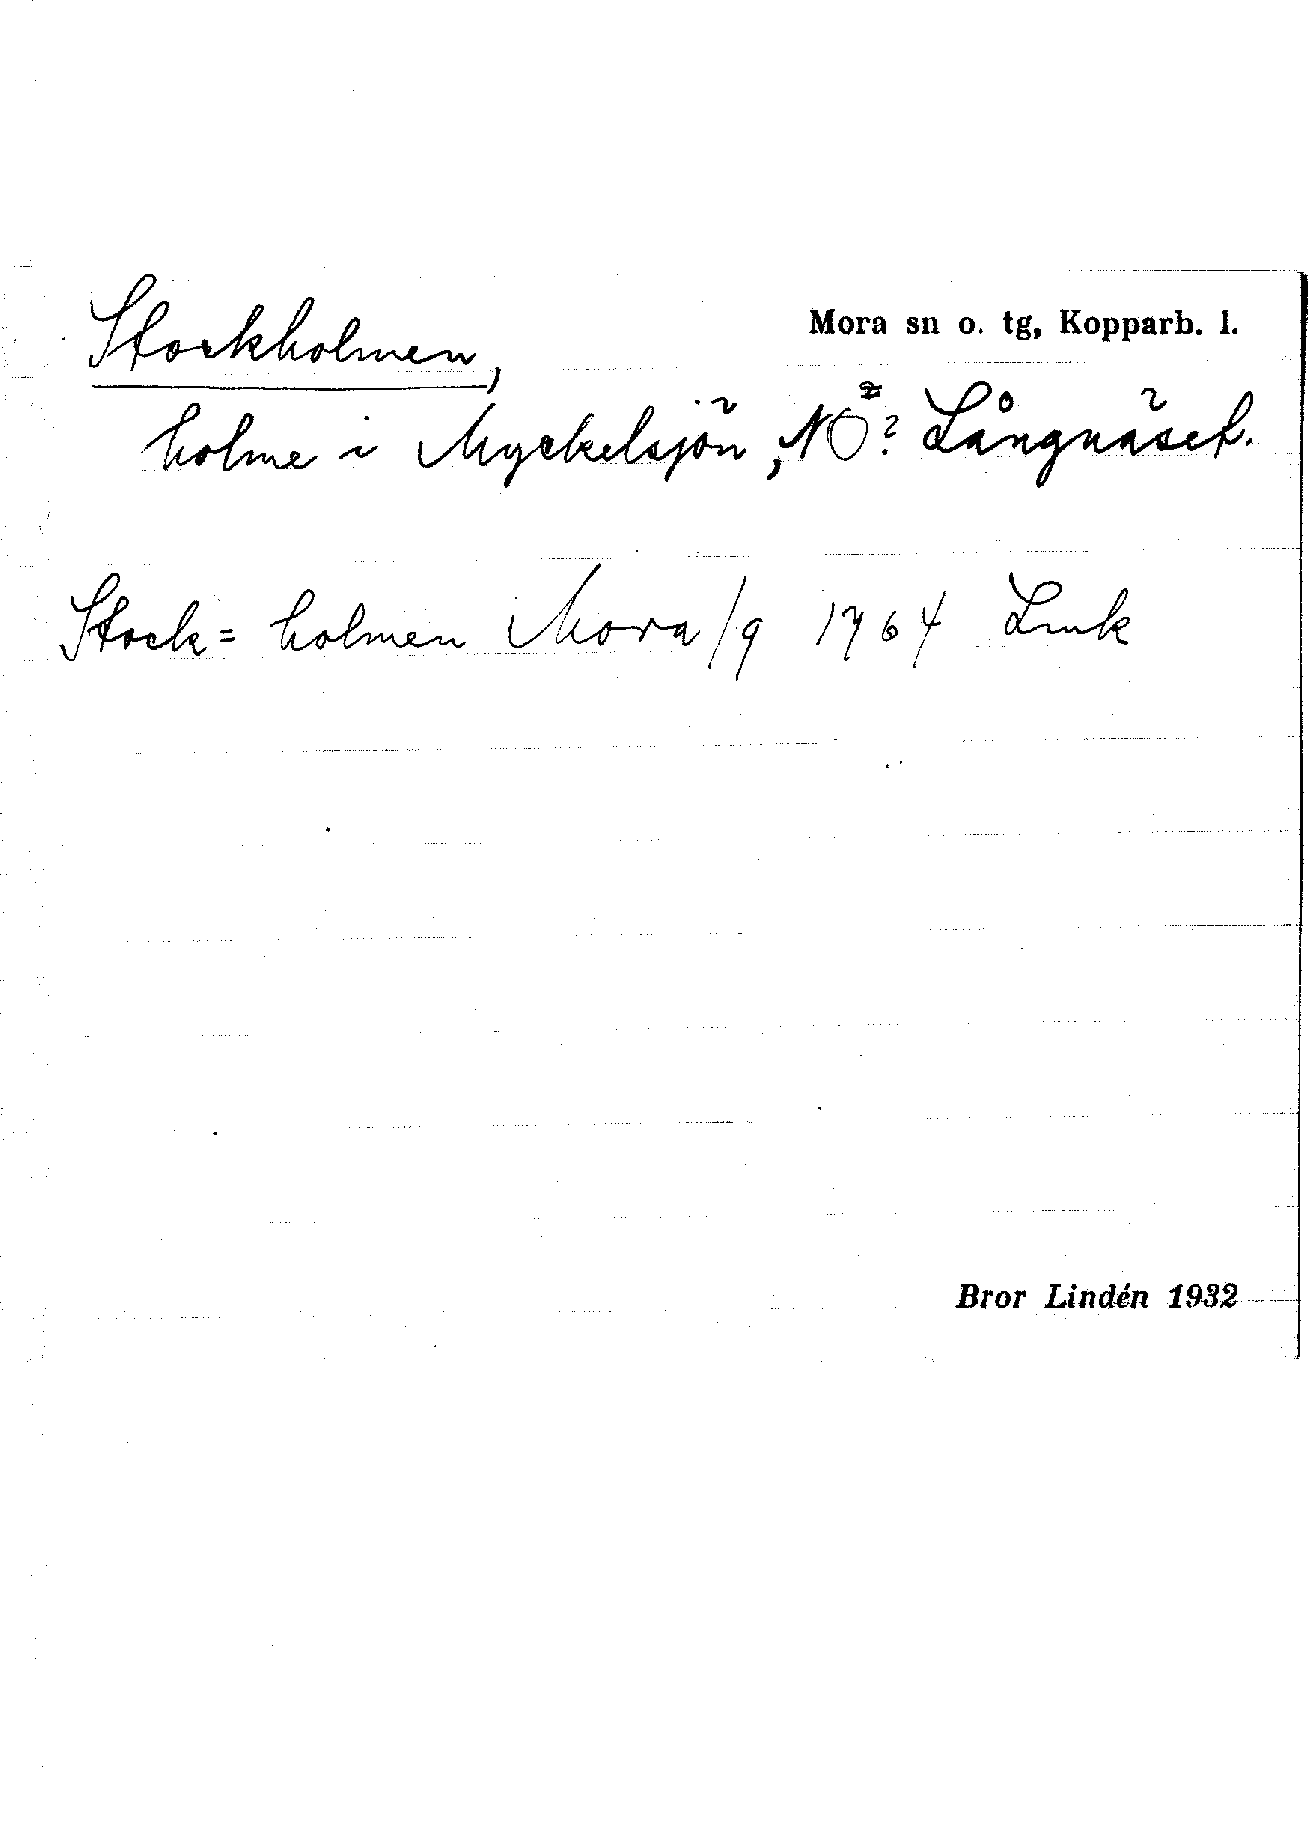 Mora sn o. tg, Kopparb. l.
Stockholmen,
holme i Myckelsjön, NÖ? Långnäset.
Stock= holmen Mora /9 1764 Lmk
Bror Lindén 1932